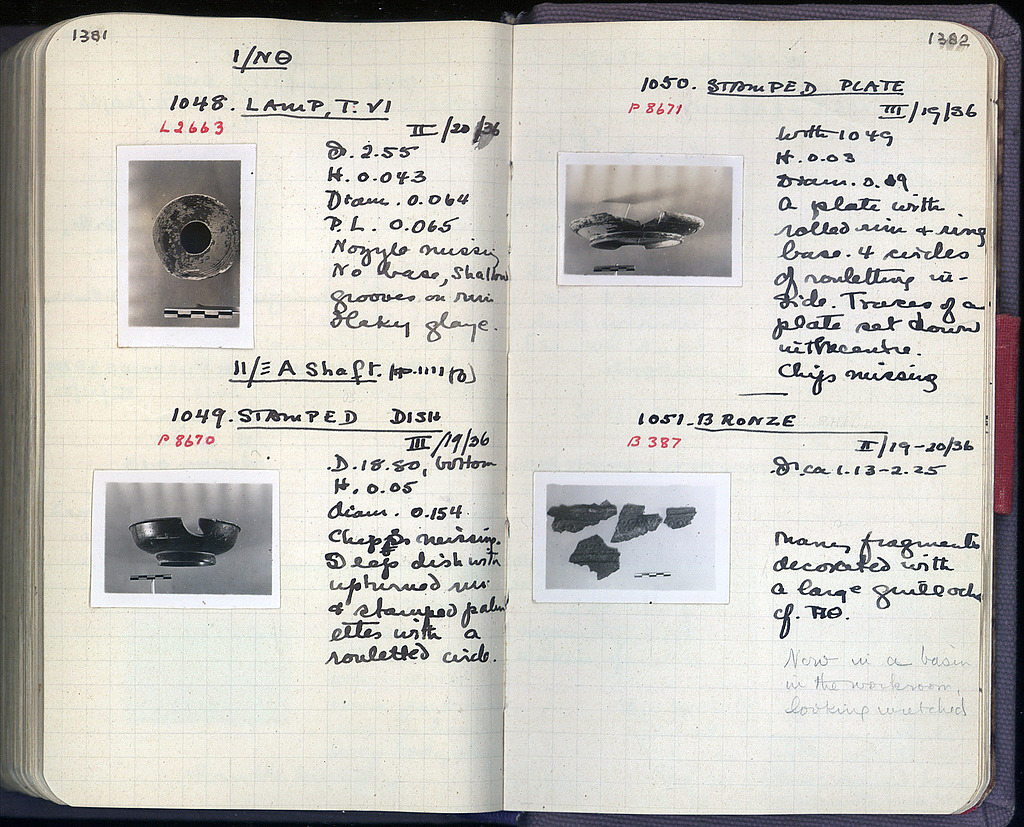 1381
I/ΝΘ
1048. LAMP, T. VI
L 2663
II/20/36
D. 2.55
H. 0.043
Diam. 0.064
P. L. 0.065
Nozzle missing
No base, Shallow
grooves on rim
Flaky glaze.
II/Ξ A Shaft
1049. STAMPED DISH
P 8670
III/19/36
D. 18.80, bottom
H. 0.05
diam. 0.154
Chips missing.
Deep dish with
upturned rim
& stamped palm
ettes with a
rouletted circle.
1382
1050. STAMPED PLATE
P 8671
III/19/36
With 1049
H. 0.03
Diam. 0.19
A plate with
rolled rim & ring
base. 4 circles
of rouletting in-
side. Traces of a
plate set down
in the centre.
Chips missing
1051. BRONZE
B 387
II/19-20/36
D. ca 1.13-2.25
Many fragments
decorated with
a large guilloche
cf. ΠΘ.
Now in a basin
in the workroom,
looking wretched